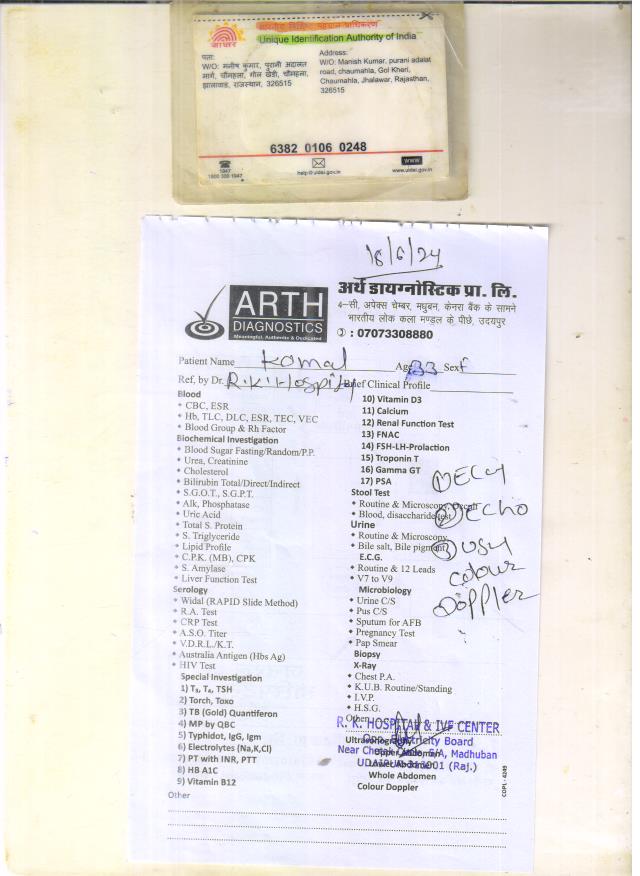 भारतीय विशिष्ट पहचान प्राधिकरण
आधार
Unique Identification Authority of India
पता:
W/O: मनीष कुमार, पुरानी अदालत
मार्ग, चौमहला, गोल खेड़ी, चौमहला,
झालावाड़, राजस्थान, 326515
Address:
W/O: Manish Kumar, purani adalat
road, chaumahla, Gol Kheri,
Chaumahla, Jhalawar, Rajasthan,
326515
6382 0106 0248
1947
1800 300 1947
help@uidai.gov.in
www
www.uidai.gov.in
18/6/24
ARTH
DIAGNOSTICS
Meaningful, Authentic & Dedicated
अर्थ डायग्नोस्टिक प्रा. लि.
4–सी, अपेक्स चेम्बर, मधुबन, केनरा बैंक के सामने
भारतीय लोक कला मण्डल के पीछे, उदयपुर
: 07073308880
Patient Name Komal Age 33 Sex F
Ref, by Dr. R.K. Hospital Brief Clinical Profile
Blood
CBC, ESR
Hb, TLC, DLC, ESR, TEC, VEC
Blood Group & Rh Factor
Biochemical Investigation
Blood Sugar Fasting/Random/P.P.
Urea, Creatinine
Cholesterol
Bilirubin Total/Direct/Indirect
S.G.O.T., S.G.P.T.
Alk, Phosphatase
Uric Acid
Total S. Protein
S. Triglyceride
Lipid Profile
C.P.K. (MB), CPK
S. Amylase
Liver Function Test
Serology
Widal (RAPID Slide Method)
R.A. Test
CRP Test
A.S.O. Titer
V.D.R.L./K.T.
Australia Antigen (Hbs Ag)
HIV Test
Special Investigation
1) T₃, T₄, TSH
2) Torch, Toxo
3) TB (Gold) Quantiferon
4) MP by QBC
5) Typhidot, IgG, Igm
6) Electrolytes (Na,K,Cl)
7) PT with INR, PTT
8) HB A1C
9) Vitamin B12
10) Vitamin D3
11) Calcium
12) Renal Function Test
13) FNAC
14) FSH-LH-Prolaction
15) Troponin T
16) Gamma GT
17) PSA
Stool Test
Routine & Microscopy, Occult
Blood, disaccharide test
Urine
Routine & Microscopy
Bile salt, Bile pigment
E.C.G.
Routine & 12 Leads
V7 to V9
Microbiology
Urine C/S
Pus C/S
Sputum for AFB
Pregnancy Test
Pap Smear
Biopsy
X-Ray
Chest P.A.
K.U.B. Routine/Standing
I.V.P.
H.S.G.
Other
Ultrasonography
Upper Abdomen
Lower Abdomen
Whole Abdomen
Colour Doppler
① ECG
② ECHO
③ USG
colour
Doppler
R. K. HOSPITAL & IVF CENTER
Opp. Electricity Board
Near Chetak Circle, 5/A, Madhuban
UDAIPUR-313001 (Raj.)
Other
COPL - 4249